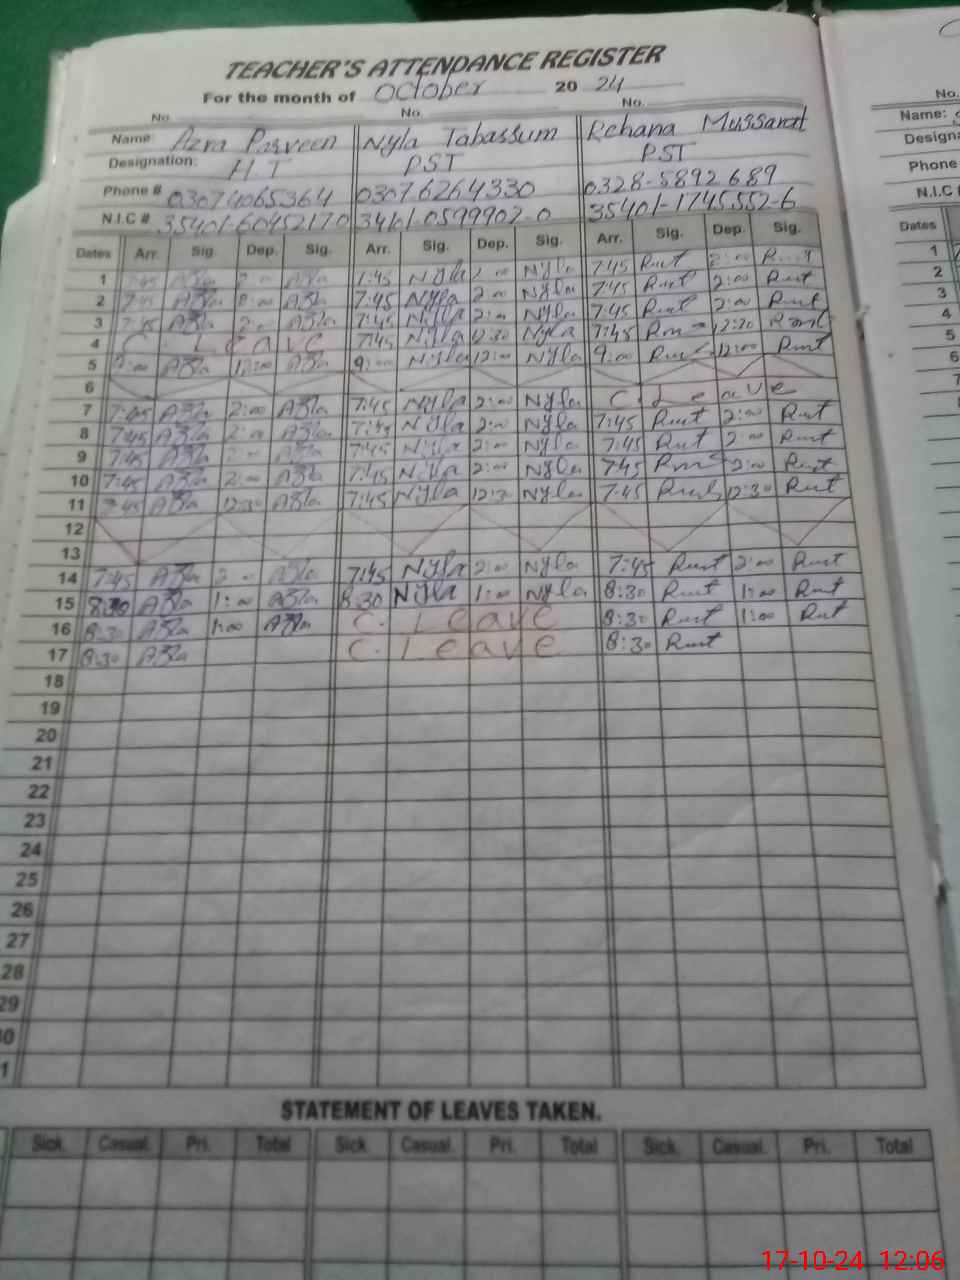 TEACHER'S ATTENDANCE REGISTER
For the month of October 20 24
No. No. No.
Name: Azra Parveen Nyla Tabassum Rehana Mussarat
Designation: H T PST PST
Phone # 03074065364 03076264330 0328-5892689
N.I.C # 35401-6045217 0 34101-0599902-0 35401-1745552-6
Dates Arr. Sig. Dep. Sig. Arr. Sig. Dep. Sig. Arr. Sig. Dep. Sig.
1 7:45 2:00 Nyla 2:00 Nyla 7:45 Rmt 2:00
2 7:45 7:45 Nyla 2:00 Nyla 7:45 Rmt 2:00 Rmt
3 7:45 2:00 7:45 Nyla 2:00 Nyla 7:45 Rmt 2:00 Rmt
4 C. Leave 7:45 Nyla 12:30 Nyla 7:45 12:30
5 9:00 12:00 9:00 Nyla 12:00 Nyla 9:00 12:00 Rmt
6
7 7:45 2:00 7:45 Nyla 2:00 Nyla C. Leave
8 7:45 2:00 7:45 Nyla 2:00 Nyla 7:45 Rmt 2:00 Rmt
9 7:45 2:00 7:45 Nyla 2:00 Nyla 7:45 Rmt 2:00 Rmt
10 7:45 2:00 7:45 Nyla 2:00 Nyla 7:45 2:00 Rmt
11 7:45 12:30 7:45 Nyla 12:30 Nyla 7:45 12:30 Rmt
12
13
14 7:45 2:00 7:45 Nyla 2:00 Nyla 7:45 Rmt 2:00 Rmt
15 8:30 1:00 8:30 Nyla 1:00 Nyla 8:30 Rmt 1:00 Rmt
16 8:30 1:00 C. Leave 8:30 Rmt 1:00 Rmt
17 8:30 C. Leave 8:30 Rmt
18
19
20
21
22
23
24
25
26
27
28
29
0
1
STATEMENT OF LEAVES TAKEN.
Sick. Casual. Pri. Total Sick. Casual. Pri. Total Sick. Casual. Pri. Total
No.
Name:
Designa
Phone
N.I.C
Dates
1
2
3
4
5
6
17-10-24 12:06